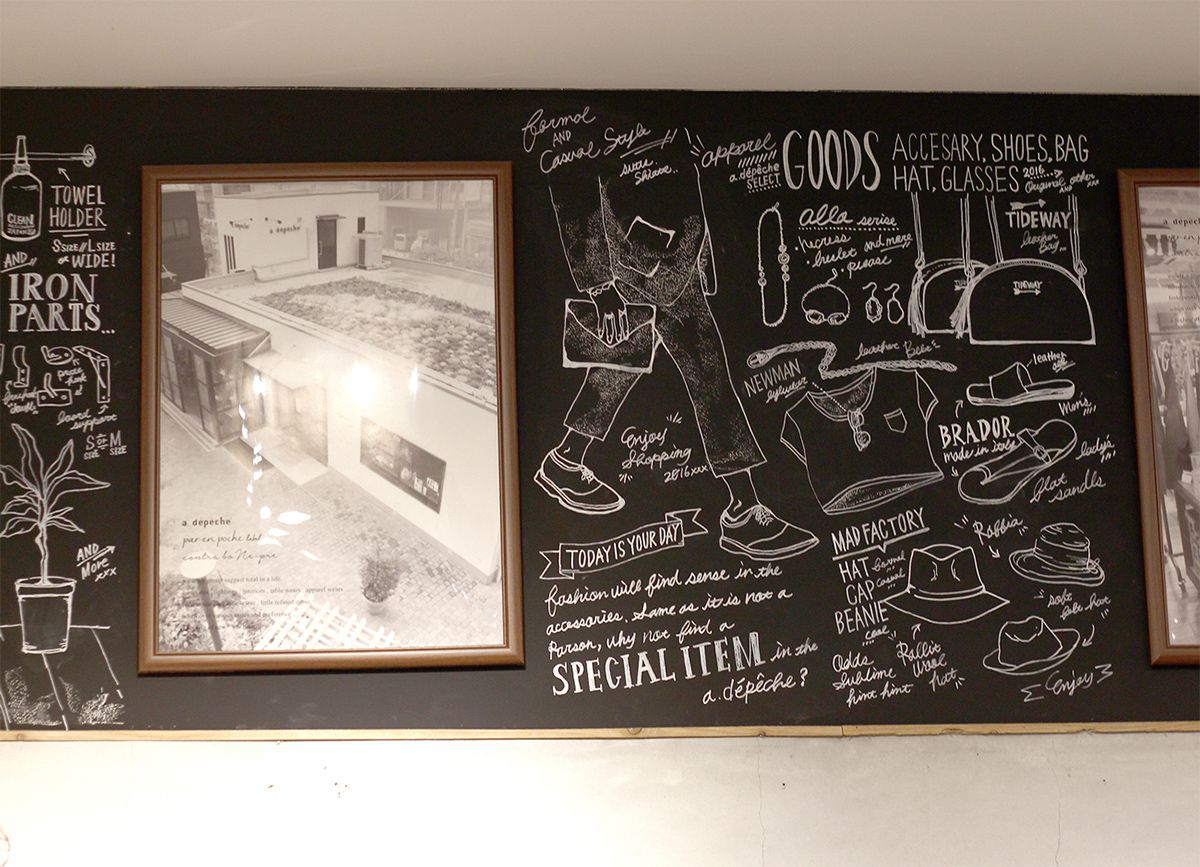 CLEAN
TOWEL
HOLDER
S SIZE // L SIZE
or WIDE!
AND
IRON
PARTS...
board
support
S OF M
SIZE SIZE
AND
More
xxx
a depeche
a. depeche
par en poche label
contra bo Ne-pre
formal
AND
Casual Style
Enjoy
Shopping
2016xxx
TODAY IS YOUR DAY
fashion will find sense in the
accessories. Same as it is not a
Parson, why not find a
SPECIAL ITEM in the
a.dépêche?
apparel
a.dépêche
SELECT
GOODS
ACCESARY, SHOES, BAG
HAT, GLASSES 2016
Original other
AND xxx
alla serise
and more
TIDEWAY
leather
Bag
TIDEWAY
leather Belt
NEWMAN
eyewear
leather
Men's
BRADOR
made in italy
lady's
flat
sandls
MAD FACTORY
HAT formal
casual
CAP
BEANIE
cool
Odds
Sublime
hint hint
Rabbit
Wool
hat
Rabbia
soft
hat
Enjoy
a depech